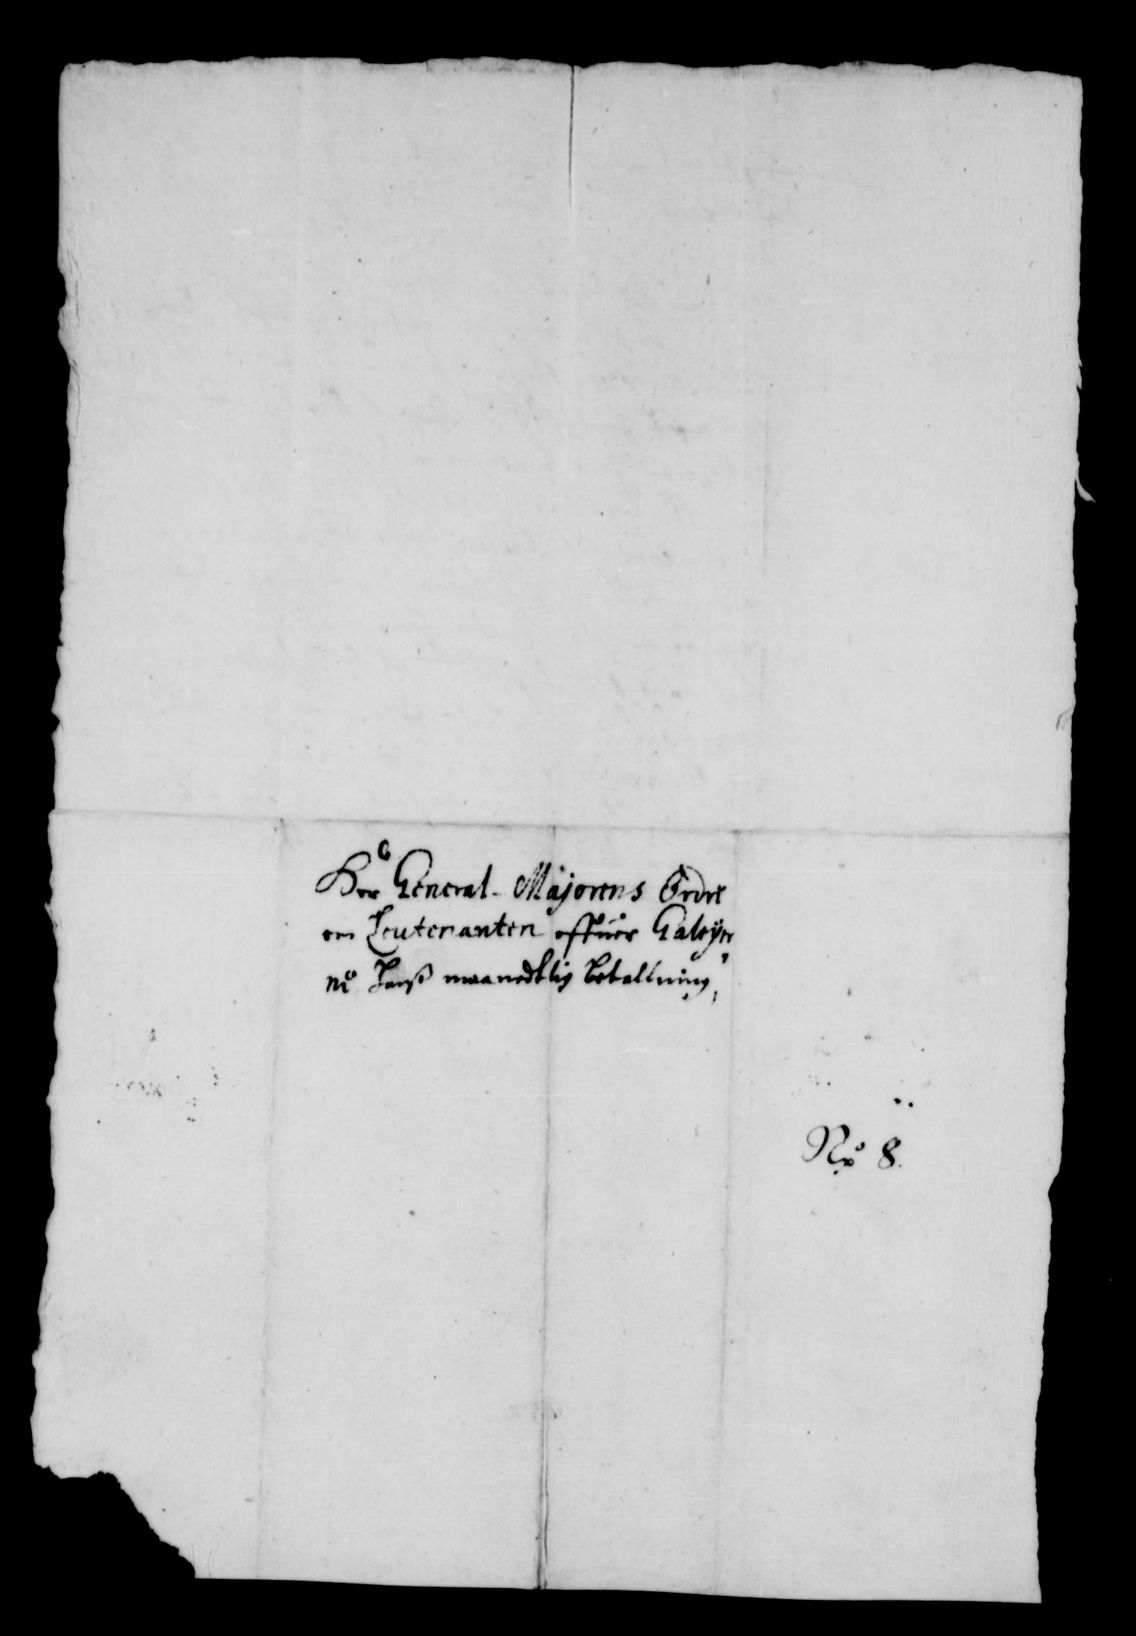 Her General-Majorens Ordre
om Leutenanten offuer Galeyer
ne Hanß maanedtlig betallning,
No 8.